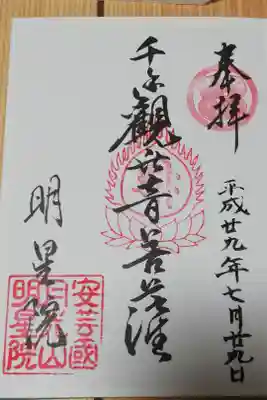 奉拝
平成廿九年七月廿九日
千手觀世音菩薩
明星院
安芸國
明星院